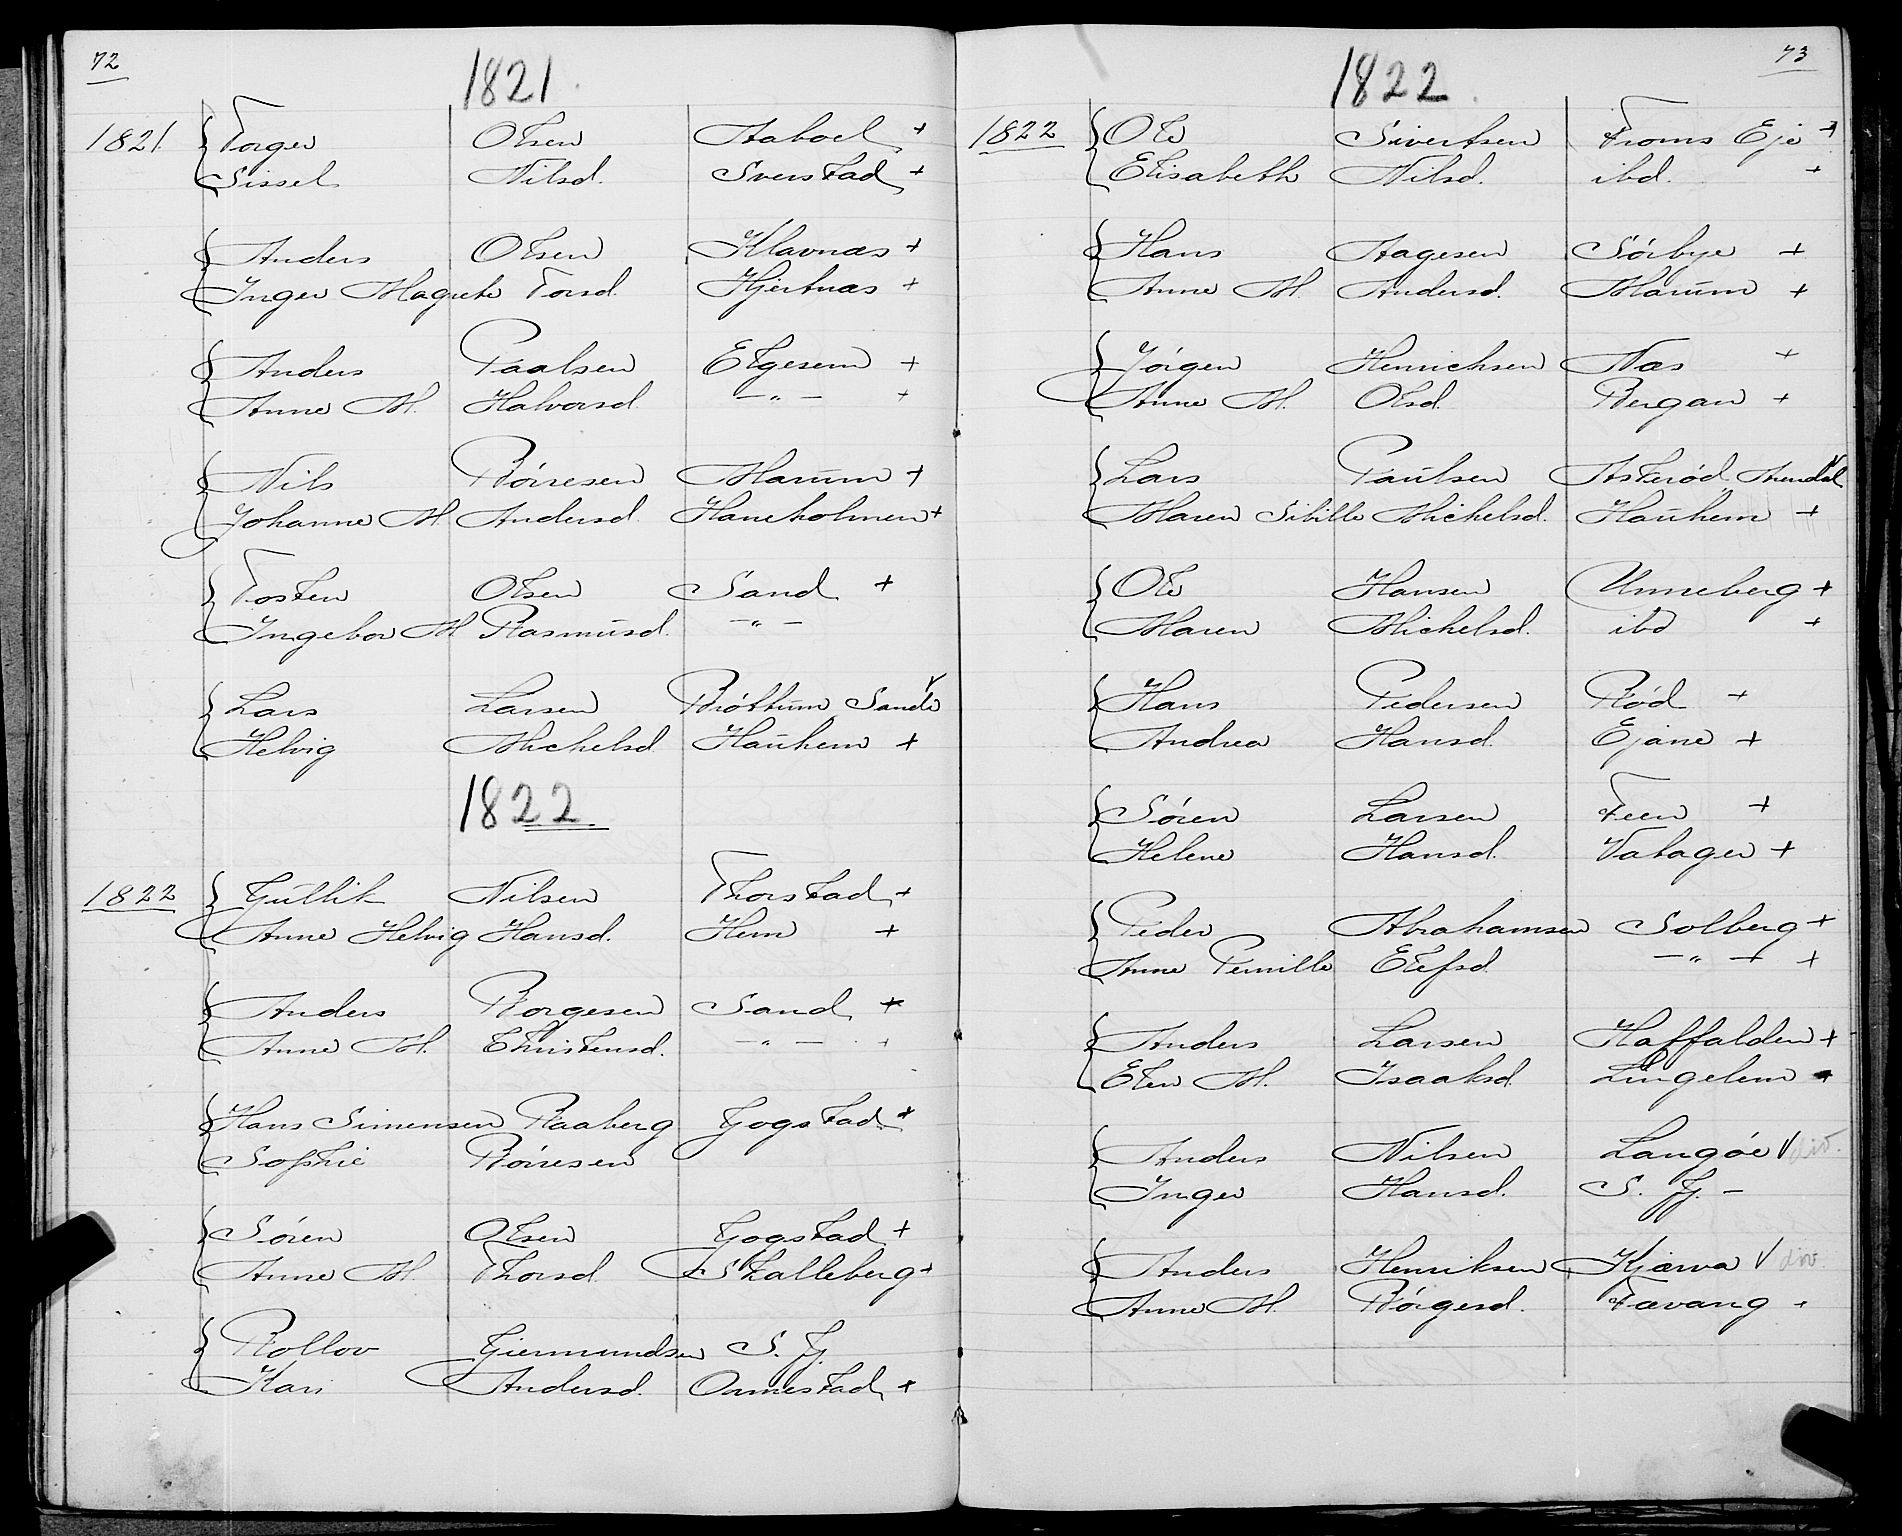 72
1821
1821 Torger Olsen Aaboel +
Sissel Nilsd. Sverstad +
Anders Olsen Klavnæs +
Inger Magrete Torsd. Hjertnæs +
Anders Paalsen Elgesem +
Anne M. Halvorsd. — „ — +
Nils Börresen Marum +
Johanne M. Andersd. Haneholmen +
Tosten Olsen Sand +
Ingebor M Rasmusd. — „ —
Lars Larsen Bröttum Sande
Helvig Michelsd Hauhem +
1822
1822 Gullik Nilsen Thorstad +
Anne Helvig Hansd. Hem +
Anders Borgesen Sand +
Anne M. Christensd. — „ — +
Hans Simensen Raaberg Gogstad +
Sophie Börresen
Sören Olsen Gogstad +
Anne M. Thorsd. Skalleberg +
Rollov Giermundsen S. Fj.
Kari Andersd. Ormestad +
73
1822
1822 Ole Sivertsen Froms Eje +
Elisabeth Nilsd. ibd. +
Hans Aagesen Sörbye +
Anne M. Andersd. Marum +
Jörgen Henrichsen Næs +
Anne M. Olsd. Bergan +
Lars Paulsen Asterød Arendal
Maren Sibille Michelsd. Hauhem +
Ole Hansen Unneberg +
Maren Michelsd. ibd +
Hans Pedersen Röd +
Andrea Hansd. Ejane +
Sören Larsen Feen +
Helene Hansd. Vatager +
Peder Abrahamsen Solberg +
Anne Pernille Elefsd. — „ — +
Anders Larsen Haffalden +
Elen M. Isaaksd. Lingelem +
Anders Nilsen Langöe V div.
Inger Hansd. S. Fj. —
Anders Henriksen Kjærra V div.
Anne M. Börgesd. Fævang +